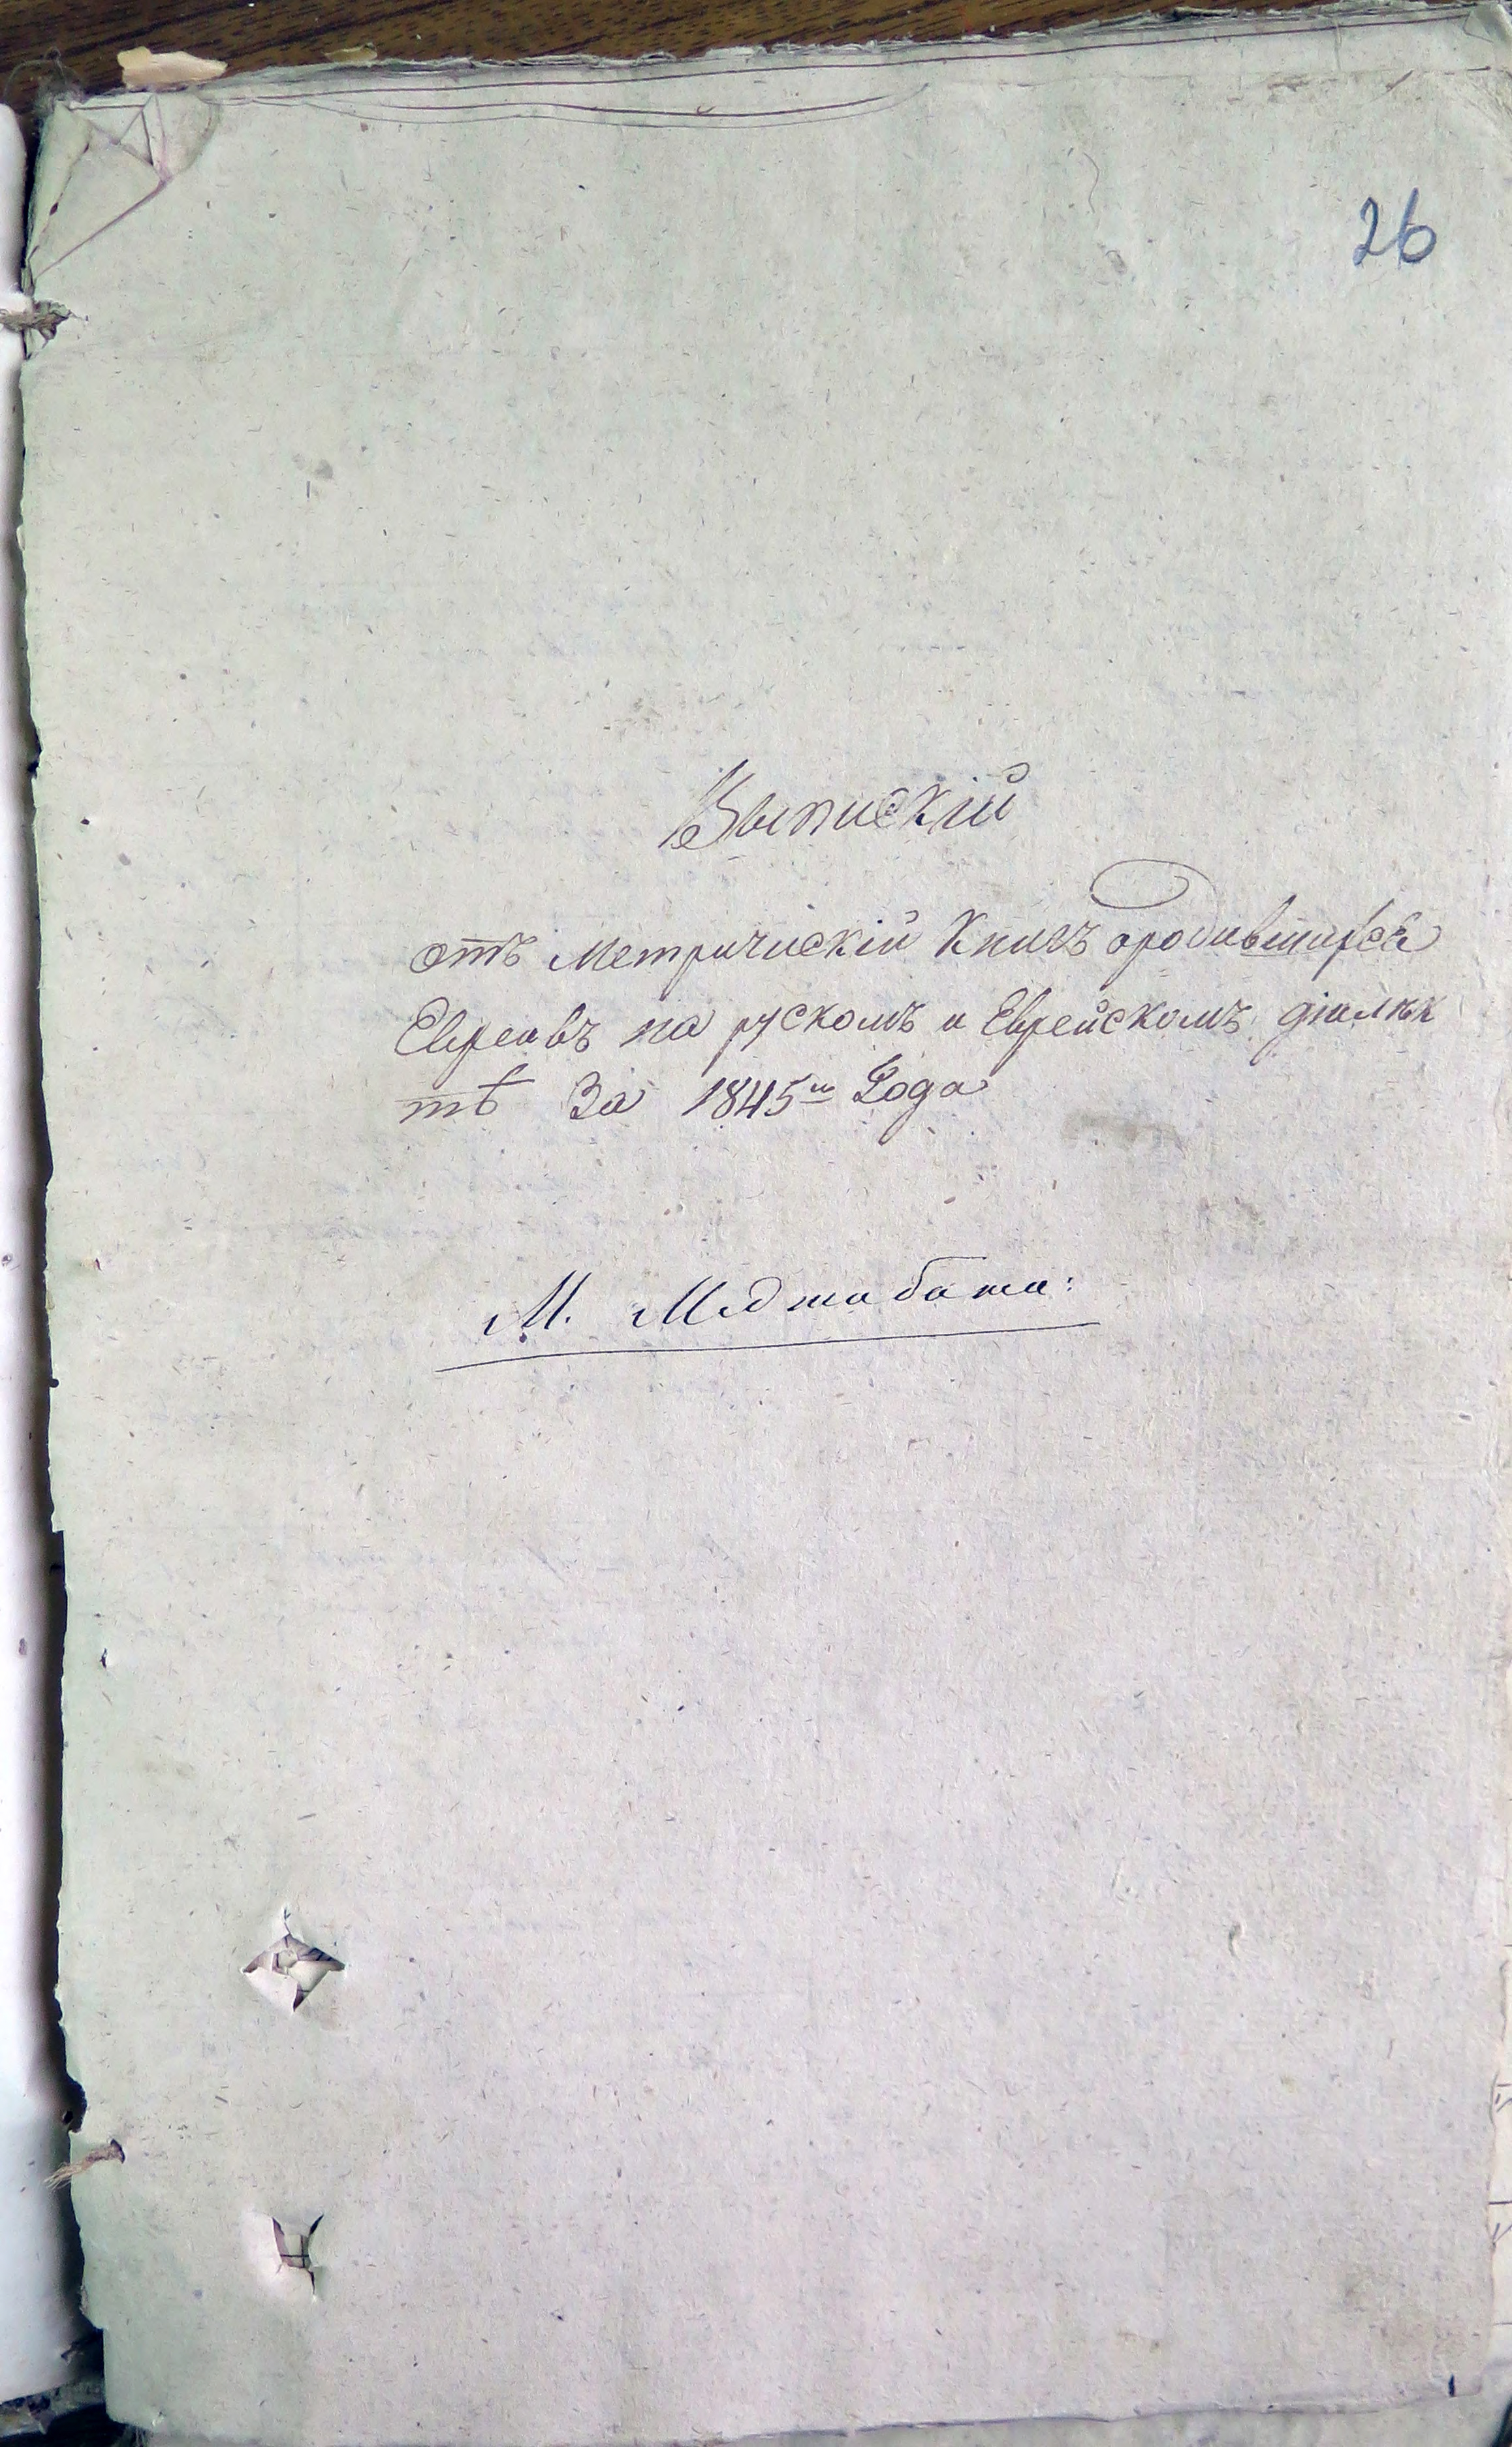 26
Выпискій
отъ Метрическій Книгъ ородившихся
Евреевъ на рускомъ и Еврейскомъ діалѣк
тѣ За 1845й Года
М. Меджибожа: